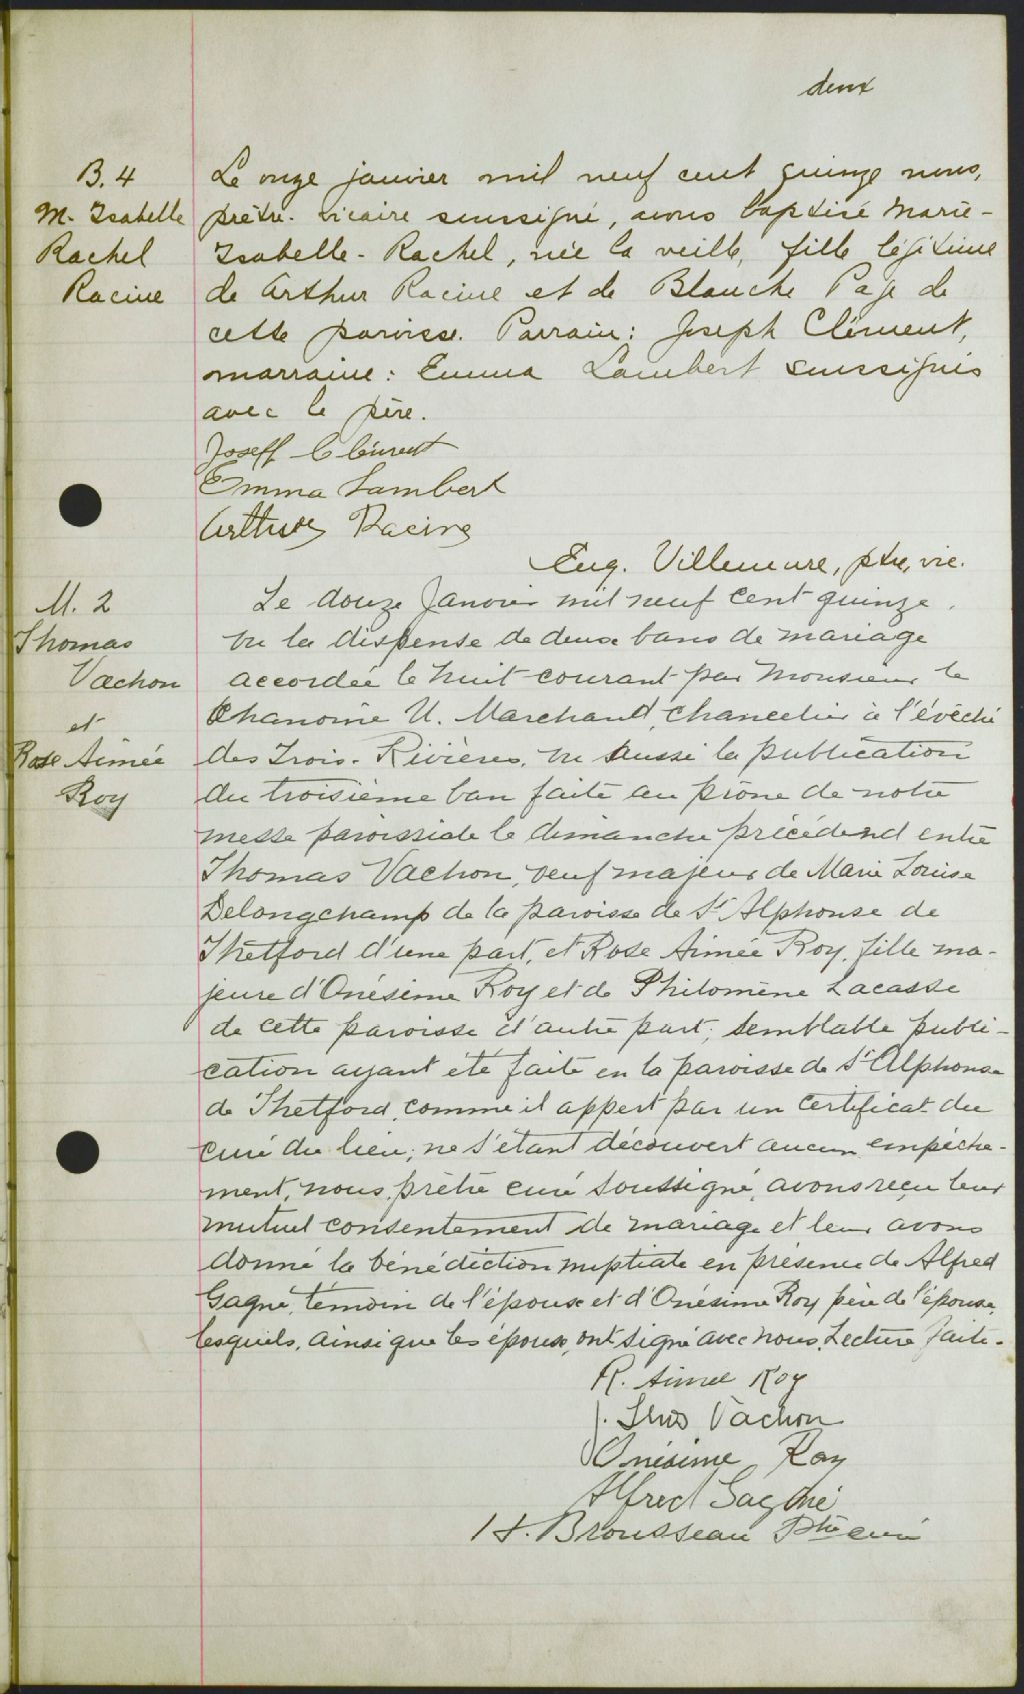 deux
B. 4
M. Isabelle
Rachel
Racine
Le onze janvier mil neuf cent quinze nous,
prêtre-vicaire soussigné, avons baptisé Marie-
Isabelle-Rachel, née la veille, fille légitime
de Arthur Racine et de Blanche Page de
cette paroisse. Parrain: Joseph Clément,
marraine: Emma Lambert soussignés
avec le père.
Joseff Clément
Emma Lambert
Arthur Racine
Eug. Villemure, ptre, vic.
M. 2
Thomas
Vachon
et
Rose Aimée
Roy
Le douze Janvier mil neuf cent quinze,
vu la dispense de deux bans de mariage
accordée le huit courant par Monsieur le
Chanoine U. Marchand, chancelier à l'évêché
des Trois-Rivières, vu aussi la publication
du troisième ban faite au prône de notre
messe paroissiale le dimanche précédend entre
Thomas Vachon, veuf majeur de Marie Louise
Delongchamp de la paroisse de St Alphonse de
Thetford d'une part, et Rose Aimée Roy, fille ma-
jeure d'Onésime Roy et de Philomène Lacasse
de cette paroisse d'autre part; semblable publi-
cation ayant été faite en la paroisse de St Alphonse
de Thetford, comme il appert par un certificat du
curé du lieu; ne s'étant découvert aucun empêche-
ment, nous, prêtre curé soussigné, avons reçu leur
mutuel consentement de mariage et leur avons
donné la bénédiction nuptiale en présence de Alfred
Gagné, témoin de l'époux et d'Onésime Roy père de l'épouse,
lesquels, ainsi que les époux, ont signé avec nous. Lecture faite.
R. Aimee Roy
J. Vachon
Onésime Roy
Alfred Gagné
H. Brousseau Ptre curé